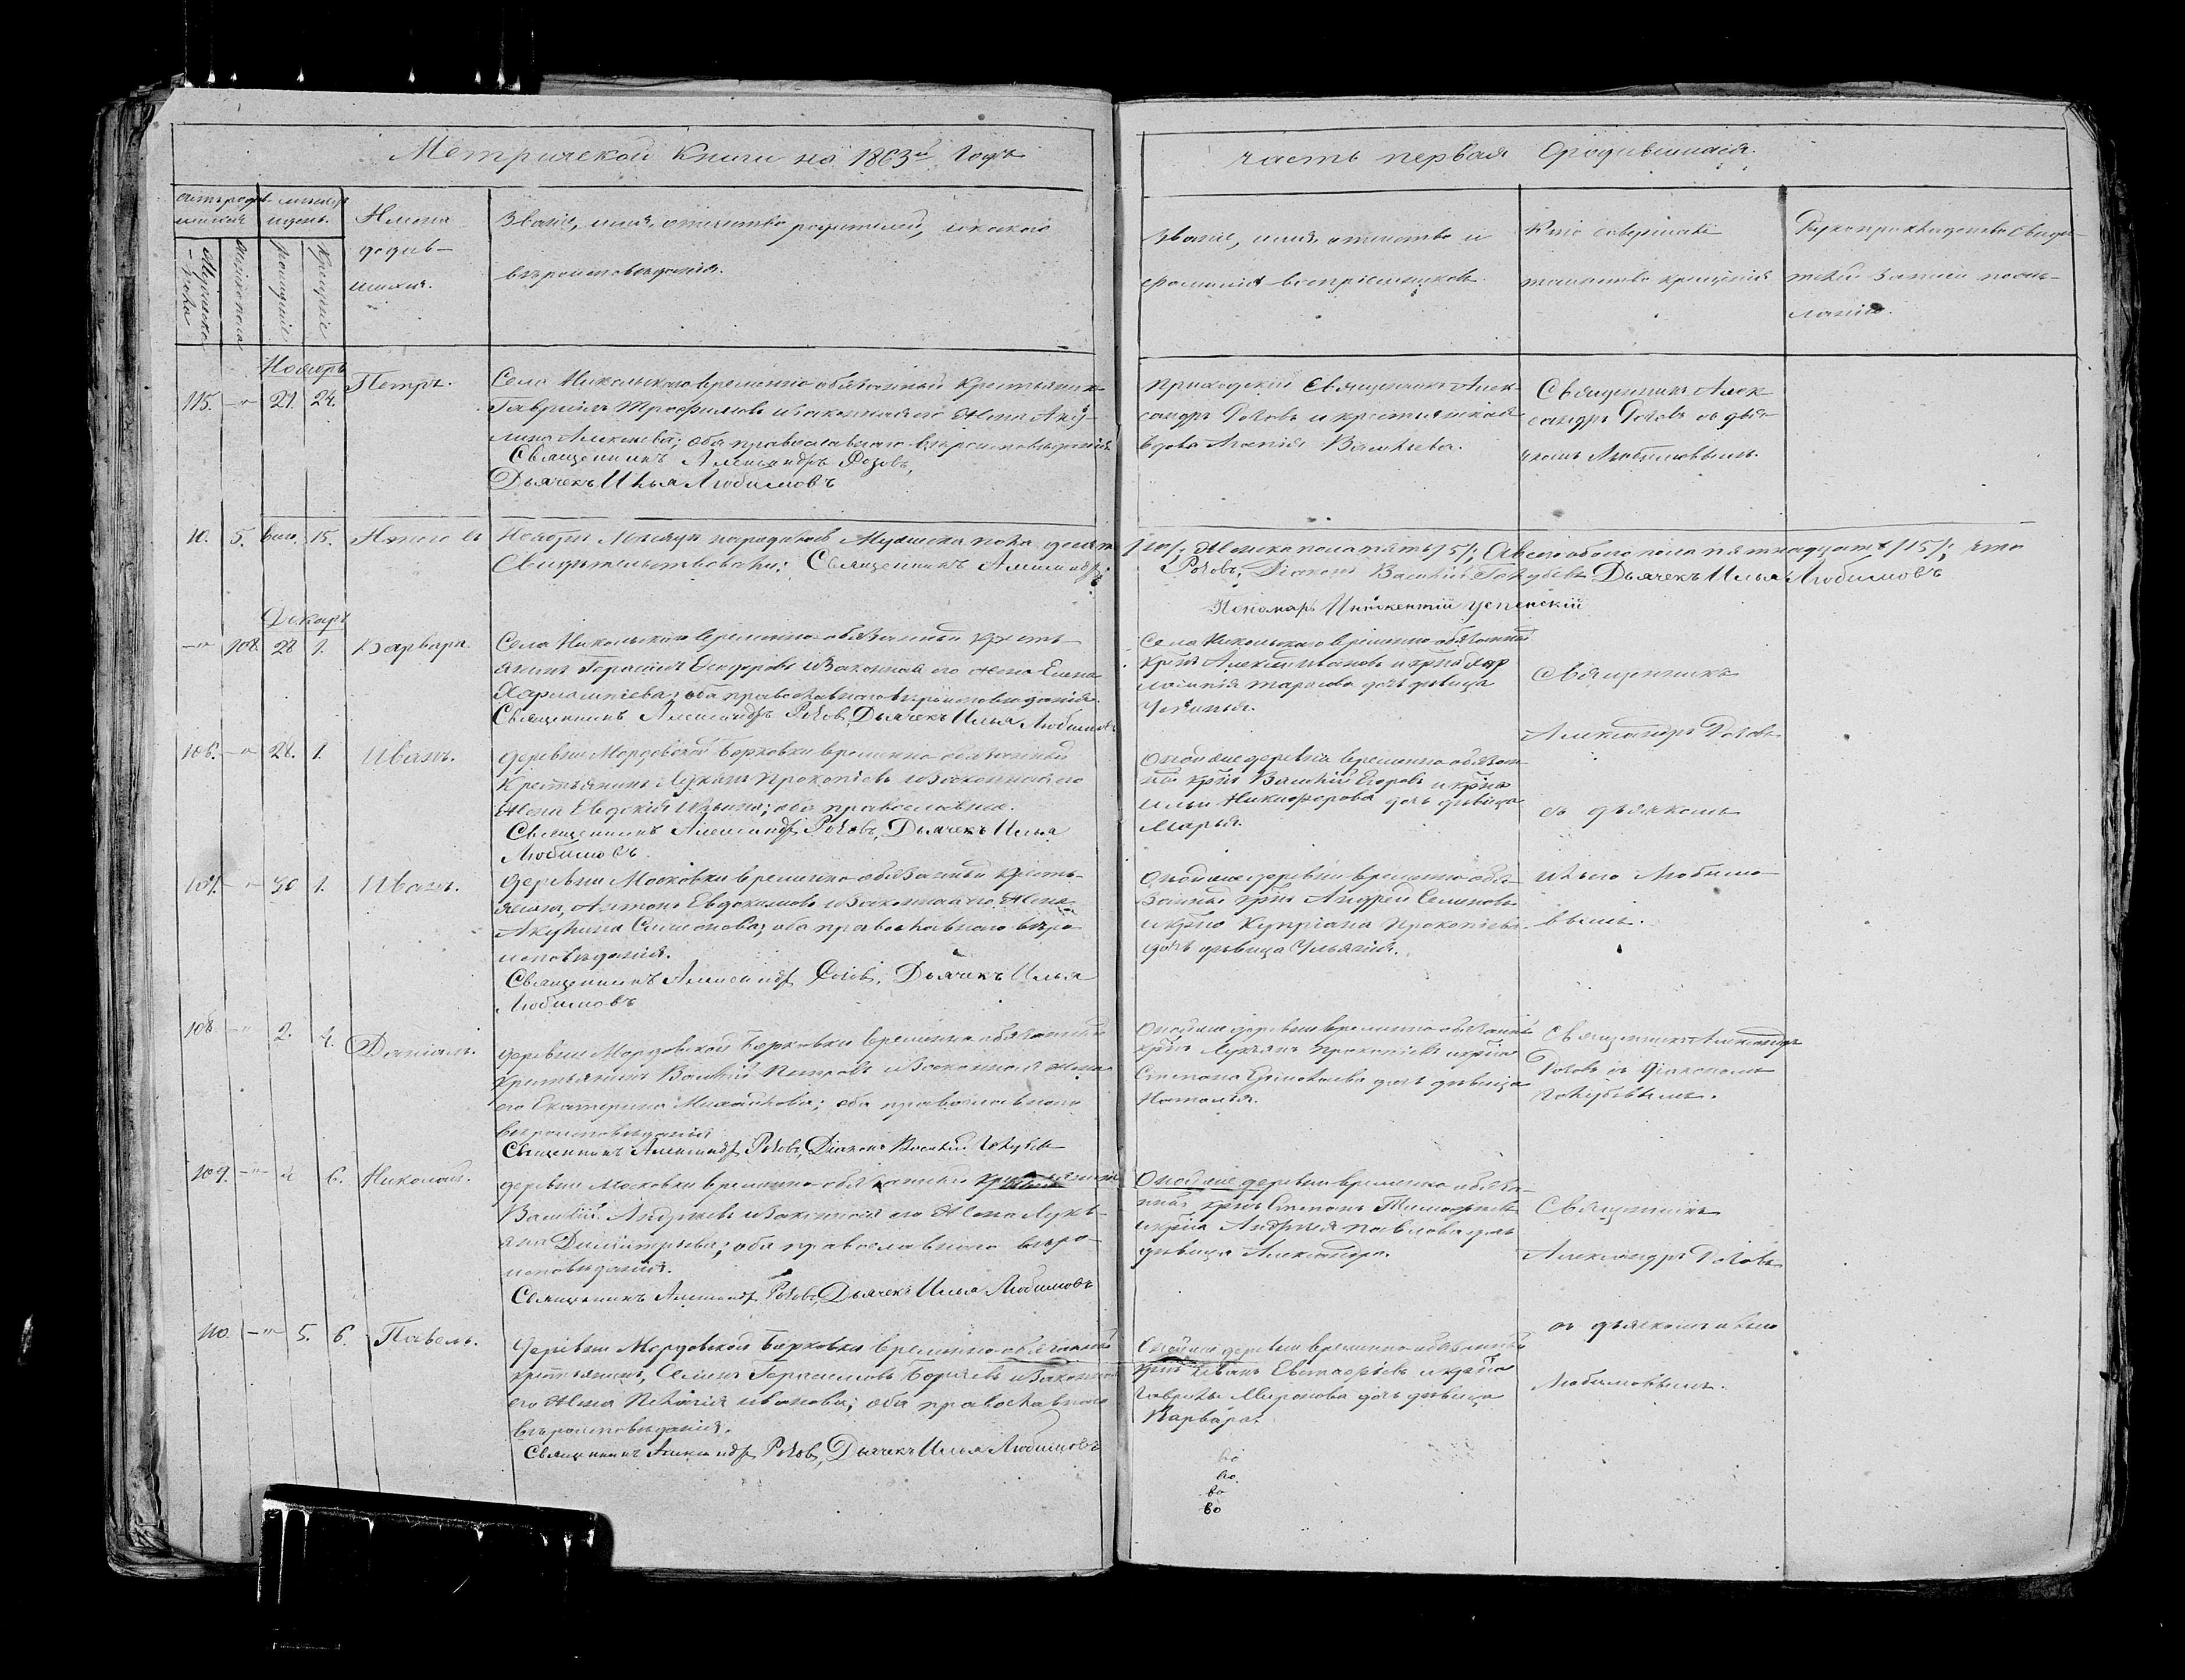 Метрической Книги на 1863й Годъ
часть первая О родившихся.
Счетъ родив-
шихся
Мужеска
пола
Женска пола
Мѣсяцъ
и день.
рожденіе
крещеніе
Имена
родив-
шихся.
Званіе, имя, отчество родителей, и какого
вѣроисповѣданія.
Званіе, имя, отчество и
фамилія воспріемниковъ
Кто совершалъ
таинство крещенія
Рукоприкладство свидѣ-
телей записи по же-
ланію.
Ноябрь
115. —„— 21. 24. Петръ.
Села Никольскаго временно обязанный крестьянинъ
Гавріилъ Трофимовъ и законная его жена Аку-
лина Алексѣева; оба православнаго вѣроисповѣданія
Священникъ Александръ Розовъ,
Дьячекъ Илья Любимовъ
Приходскій Священникъ Алек-
сандръ Розовъ и крестьянская
вдова Васильева.
Священникъ Алек-
сандръ Розовъ съ дья-
чкомъ Любимовымъ.
10. 5. всего. 15. Итого въ Ноябрѣ Мѣсяцѣ народилось Мужеска пола десять /10/; Женска пола пять /5/; А всего обоего пола пятнадцать /15/; что
Свидѣтельствовали: Священникъ Александръ Розовъ, Діаконъ Василій Голубевъ Дьячекъ Илья Любимовъ
Пономарь Иннокентій Успенскій
Декабрь
—„— 108. 28 1. Варвара.
Села Никольскаго временно обязанный кресть-
янинъ Герасимъ Ѳедоровъ и законная его жена Елена
Харлампіева; оба православнаго вѣроисповѣданія.
Священникъ Александръ Розовъ, Дьячекъ Илья Любимовъ
Села Никольскаго временно обязанный
крнъ Алексѣй Ивановъ и крна Хар
лампія Тарасова дочь дѣвица
Устинья.
Священникъ
Александръ Розовъ
106. —„— 28. 1. Иванъ.
Деревни Мордовской Борковки временно обязанный
Крестьянинъ Лукьянъ Прокопіевъ и законная его
жена Евдокія Ильина; оба православные.
Священникъ Александръ Розовъ, Дьячекъ Илья
Любимовъ.
Оной же деревни временно обязан-
ный крнъ Василій Егоровъ и крна
Ильи Никифорова дочь дѣвица
Марья.
съ дьячкомъ
107. —„— 30 1. Иванъ.
Деревни Московки временно обязанный кресть-
янинъ Антонъ Евдокимовъ и законная его жена
Акулина Симонова; оба православнаго вѣро-
исповѣданія.
Священникъ Александръ Розовъ, Дьячекъ Илья
Любимовъ
Оной же деревни временно обя-
занный крнъ Андрей Семеновъ
и крна Купріана Прокопіева
дочь дѣвица Ульянія.
Ильею Любимо-
вымъ.
108 —„— 2. 4. Даніилъ.
Деревни Мордовской Борковки временно обязанный
крестьянинъ Василій Петровъ и законная жена
его Екатерина Михайлова; оба православнаго
вѣроисповѣданія
Священникъ Александръ Розовъ, Діаконъ Василій Голубевъ
Оной же деревни временно обязанный
крнъ Лукьянъ Прокопіевъ и крна
Степана Ермолаева дочь дѣвица
Наталья.
Священникъ Александръ
Розовъ съ Діакономъ
Голубевымъ.
109. —„— 4 6. Николай.
Деревни Московки временно обязанный крестьянинъ
Василій Андреевъ и законная его жена Лукь-
яна Димитріева; оба православнаго вѣро-
исповѣданія.
Священникъ Александръ Розовъ, Дьячекъ Илья Любимовъ
Оной же деревни временно обяза-
нный крнъ Степанъ Тимофеевъ
и крна Андрея Павлова дочь
дѣвица Александра.
Священникъ
Александръ Розовъ
110. —„— 5. 6. Павелъ.
Деревни Мордовской Борковки временно обязанный
крестьянинъ, Семенъ Герасимовъ и законная
его жена Пелагія Иванова; оба православнаго
вѣроисповѣданія.
Священникъ Александръ Розовъ, Дьячекъ Илья Любимовъ
Оной же деревни временно обязанный
крнъ Иванъ Евстафіевъ и крна
Гаврилы Миронова дочь дѣвица
Варвара.
съ дьячкомъ Ильею
Любимовымъ.
во
во
во
во